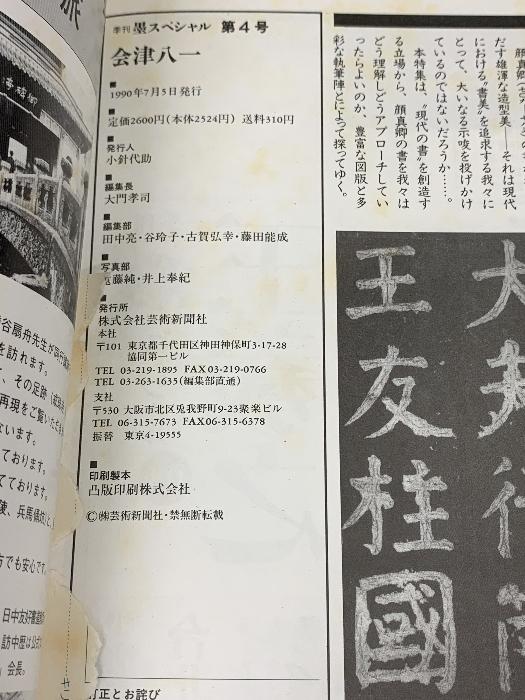 季刊 墨スペシャル 第4号
会津八一
■
1990年7月5日発行
■
定価2600円(本体2524円) 送料310円
■
発行人
小針代助
■
編集長
大門孝司
■
編集部
田中亮・谷玲子・古賀弘幸・藤田能成
■
写真部
藤純・井上奉紀
発行所
株式会社芸術新聞社
本社
〒101 東京都千代田区神田神保町3-17-28
協同第一ビル
TEL 03-219-1895 FAX03-219-0766
TEL 03-263-1635(編集部直通)
支社
〒530 大阪市北区兎我野町9-23聚楽ビル
TEL 06-315-7673 FAX06-315-6378
振替 東京4-19555
■
印刷製本
凸版印刷株式会社
©㈱芸術新聞社・禁無断転載
訂正とお詫び
だす雄渾な造型美――それは現代
における“書美”を追求する我々に
とって、大いなる示唆を投げかけ
ているのではないだろうか……。
本特集は、“現代の書”を創造す
る立場から、顔真卿の書を我々は
どう理解しどうアプローチしてい
ったらよいのか、豊富な図版と多
彩な執筆陣とによって探ってゆく。
王友桂國
派
谷扇舟先生が同行
を訪れます。
、その足跡
再現をご覧いただ
ないます。
ております。
てております。
陵、兵馬俑
方でも安心です。
日中友好書道
訪中歴は公式
会長。